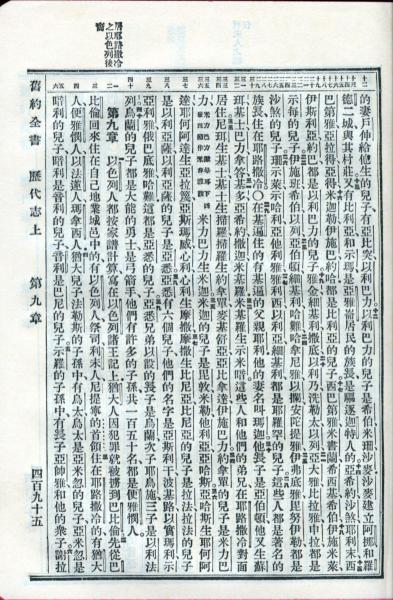 的妻戶伸給他生的兒子有亞比突以利巴力以利巴力的兒子是希伯米珊沙麥沙麥建立阿挪和羅
德二城與其村莊又有比利亞和示瑪是亞雅崙居民的族長是驅逐迦特人的亞希約沙煞耶利末西
巴第雅亞拉得亞得米迦勒伊施巴約哈都是比利亞的兒子西巴第雅米書蘭希西基希伯伊施米萊
伊斯利亞約巴都是以利巴力的兒子雅金細基利撒底以利乃洗勒太以列亞大雅比拉雅申拉都是
示每的兒子伊施班希伯以列亞伯頓細基利哈難哈拿尼雅以攔安陀提雅伊弗底雅毘努伊勒都是
沙煞的兒子珊示萊示哈利亞他利雅雅利西以利亞細基利都是耶羅罕的兒子這些人都是著名的
族長住在耶路撒冷○在基遍住的有基遍的父親耶利他的妻名叫瑪迦他長子是亞伯頓他又生蘇
珥基士巴力拿答基多亞希約撒迦米基羅米基羅生示米暗這些人和他們的弟兄在耶路撒冷對面
居住尼珥生基士基士生掃羅掃羅生約拿單麥基舒亞亞比拿達伊施巴力約拿單的兒子是米力巴
力米力巴力生米迦米迦的兒子是毘敦米勒他利亞亞哈斯亞哈斯生耶何阿
達耶何阿達生亞拉篾亞斯瑪威心利心利生摩撒摩撒生比尼亞比尼亞的兒子是拉法拉法的兒子
是以利亞薩以利亞薩的兒子是亞悉亞悉有六個兒子他們的名字是亞斯利干波基路以實瑪利示
亞利雅俄巴底雅哈難這都是亞悉的兒子亞悉兄弟以設的長子是烏蘭次子耶烏施三子是以利法
列烏蘭的兒子都是大能的勇士是弓箭手他們有許多的子孫共一百五十名都是便雅憫人。
第九章 以色列人都按家譜計算寫在以色列諸王記上猶大人因犯罪就被擄到巴比倫先從巴
比倫回來住在自己地業城邑中的有以色列人祭司利未人尼提寧的首領住在耶路撒冷的有猶大
人便雅憫人以法蓮人瑪拿西人猶大兒子法勒斯的子孫中有烏太烏太是亞米忽的兒子亞米忽是
暗利的兒子暗利是音利的兒子音利是巴尼的兒子示羅的子孫中有長子亞帥雅和他的衆子謝拉
居耶路撒冷之以色列後裔
舊約全書 歷代志上 第九章 四百九十五